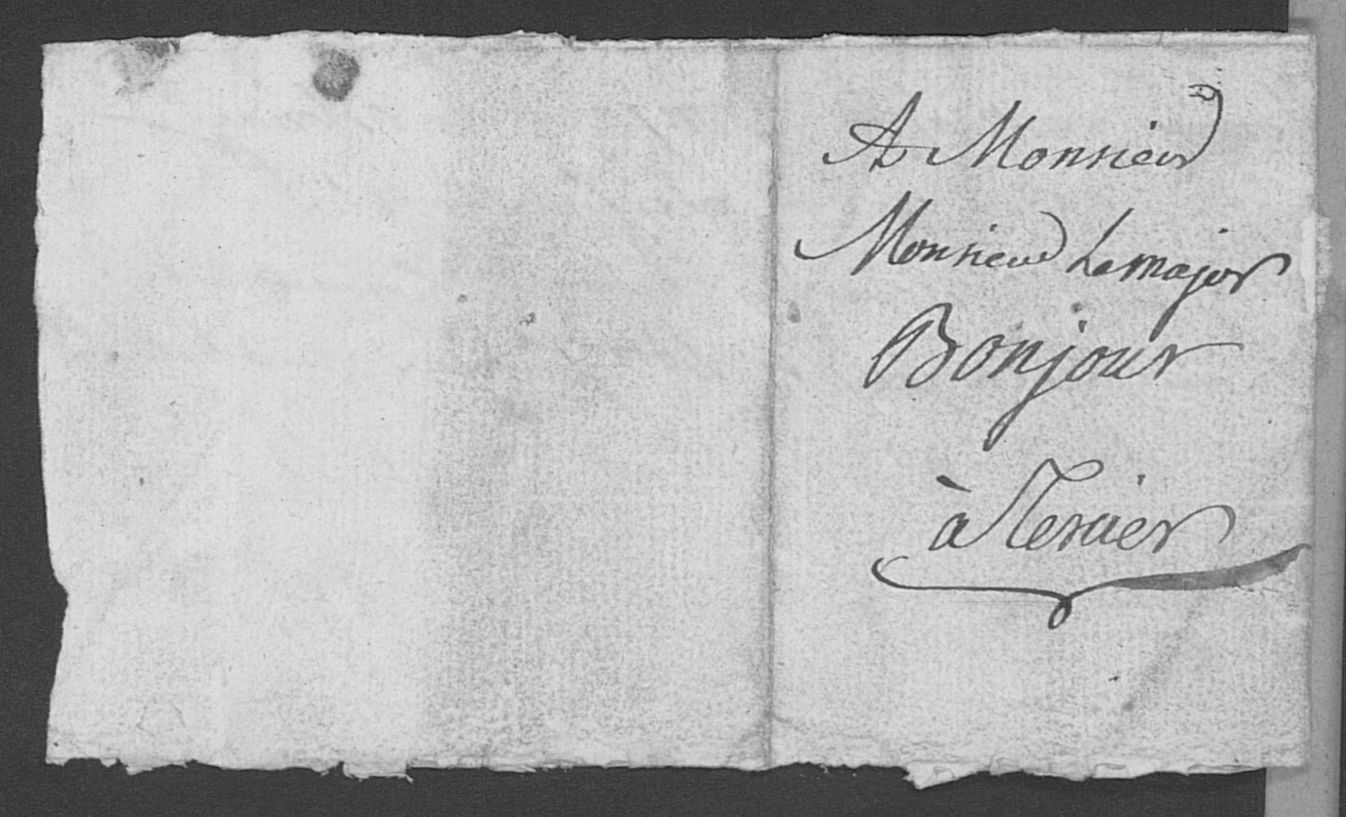 A Monsieur
Monsieur Le major
Bonjour
à